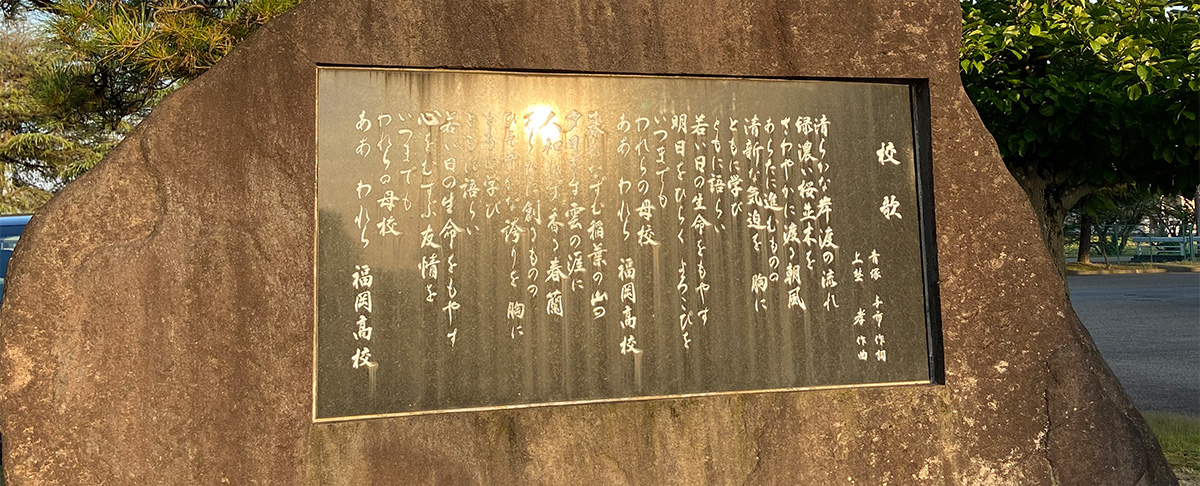 校歌
青塚 与市 作詞
上埜 孝 作曲
清らかな岸渡の流れ
緑濃い桜並木を
さわやかに渡る朝風
あらたに進むものの
清新な気迫を 胸に
ともに学び
ともに語らい
若い日の生命をもやす
明日をひらく よろこびを
いつまでも
われらの母校
ああ われら 福岡高校
暮れなずむ稲葉の山の
夕日 雲の涯に
香る春蘭
に創るものの
な誇りを 胸に
学び
語らい
若い日の生命をもやす
心をむすぶ友情を
いつまでも
われらの母校
ああ われら 福岡高校